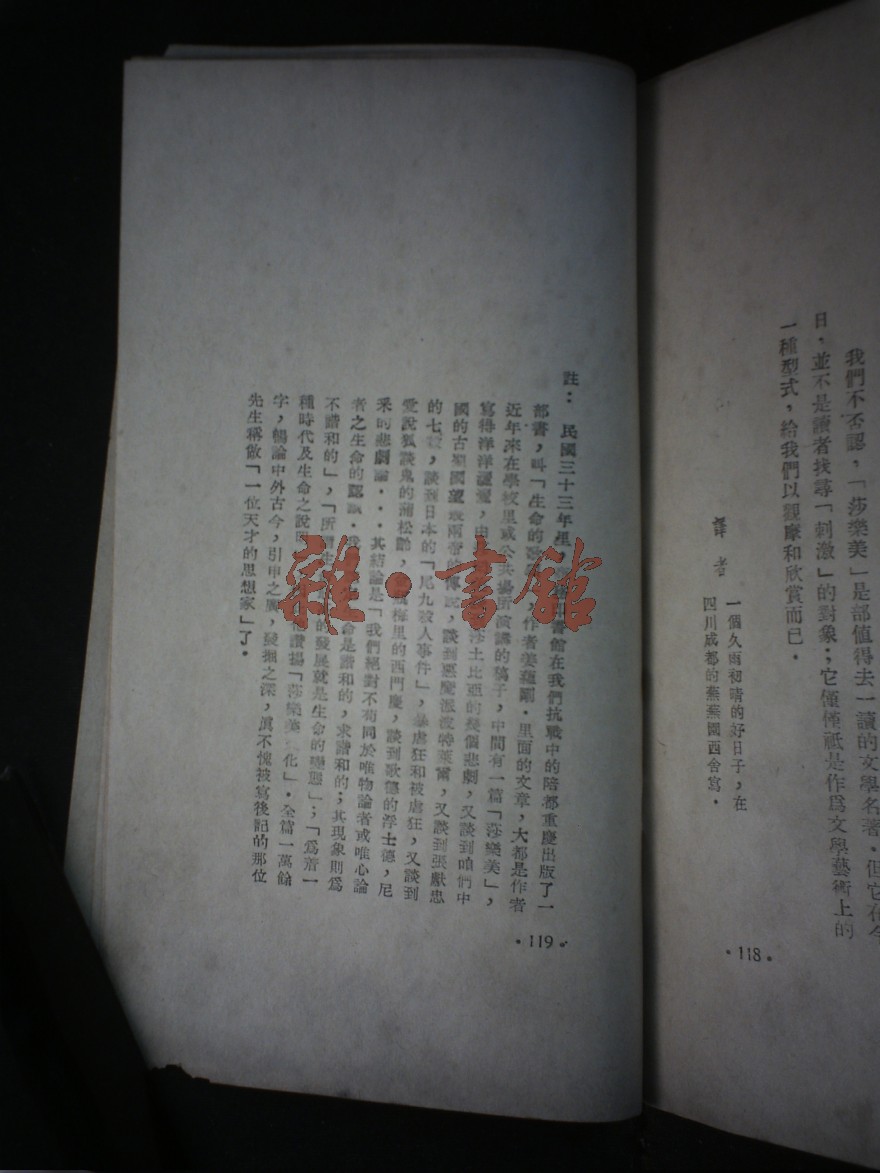 我們不否認，「莎樂美」是部值得去一讀的文學名著，但它在今
日，並不是讀者找尋「刺激」的對象；它僅僅祇是作爲文學藝術上的
一種型式，給我們以觀摩和欣賞而已．
譯者
一個久雨初晴的好日子，在
四川成都的蕪蕪園西舍寫．
·118·
註： 民國三十三年里，書館在我們抗戰中的陪都重慶出版了一
部書，叫「生命的，作者姜蘊剛．里面的文章，大都是作者
近年來在學校里或公共場所演講的稿子，中間有一篇「莎樂美」，
寫得洋洋灑灑，由莎士比亞的幾個悲劇，又談到咱們中
國的古蜀國望帝的傳說，談到惡魔派波特萊爾，又談到張獻忠
的七殺，談到日本的「尾九殺人事件」，暴虐狂和被虐狂，又談到
愛說狐談鬼的蒲松齡，梅里的西門慶，談到歌德的浮士德，尼
采的悲劇論．．．其結論是「我們絕對不苟同於唯物論者或唯心論
者之生命的認識．命是諧和的，求諧和的；其現象則爲
不諧和的」，「所謂生的發展就是生命的變態」；「爲着一
種時代及生命之說讚揚「莎樂美化」．全篇一萬餘
字，暢論中外古今，引申之廣，發掘之深，眞不愧被寫後記的那位
先生稱做「一位天才的思想家」了．
·119·
雜·書館